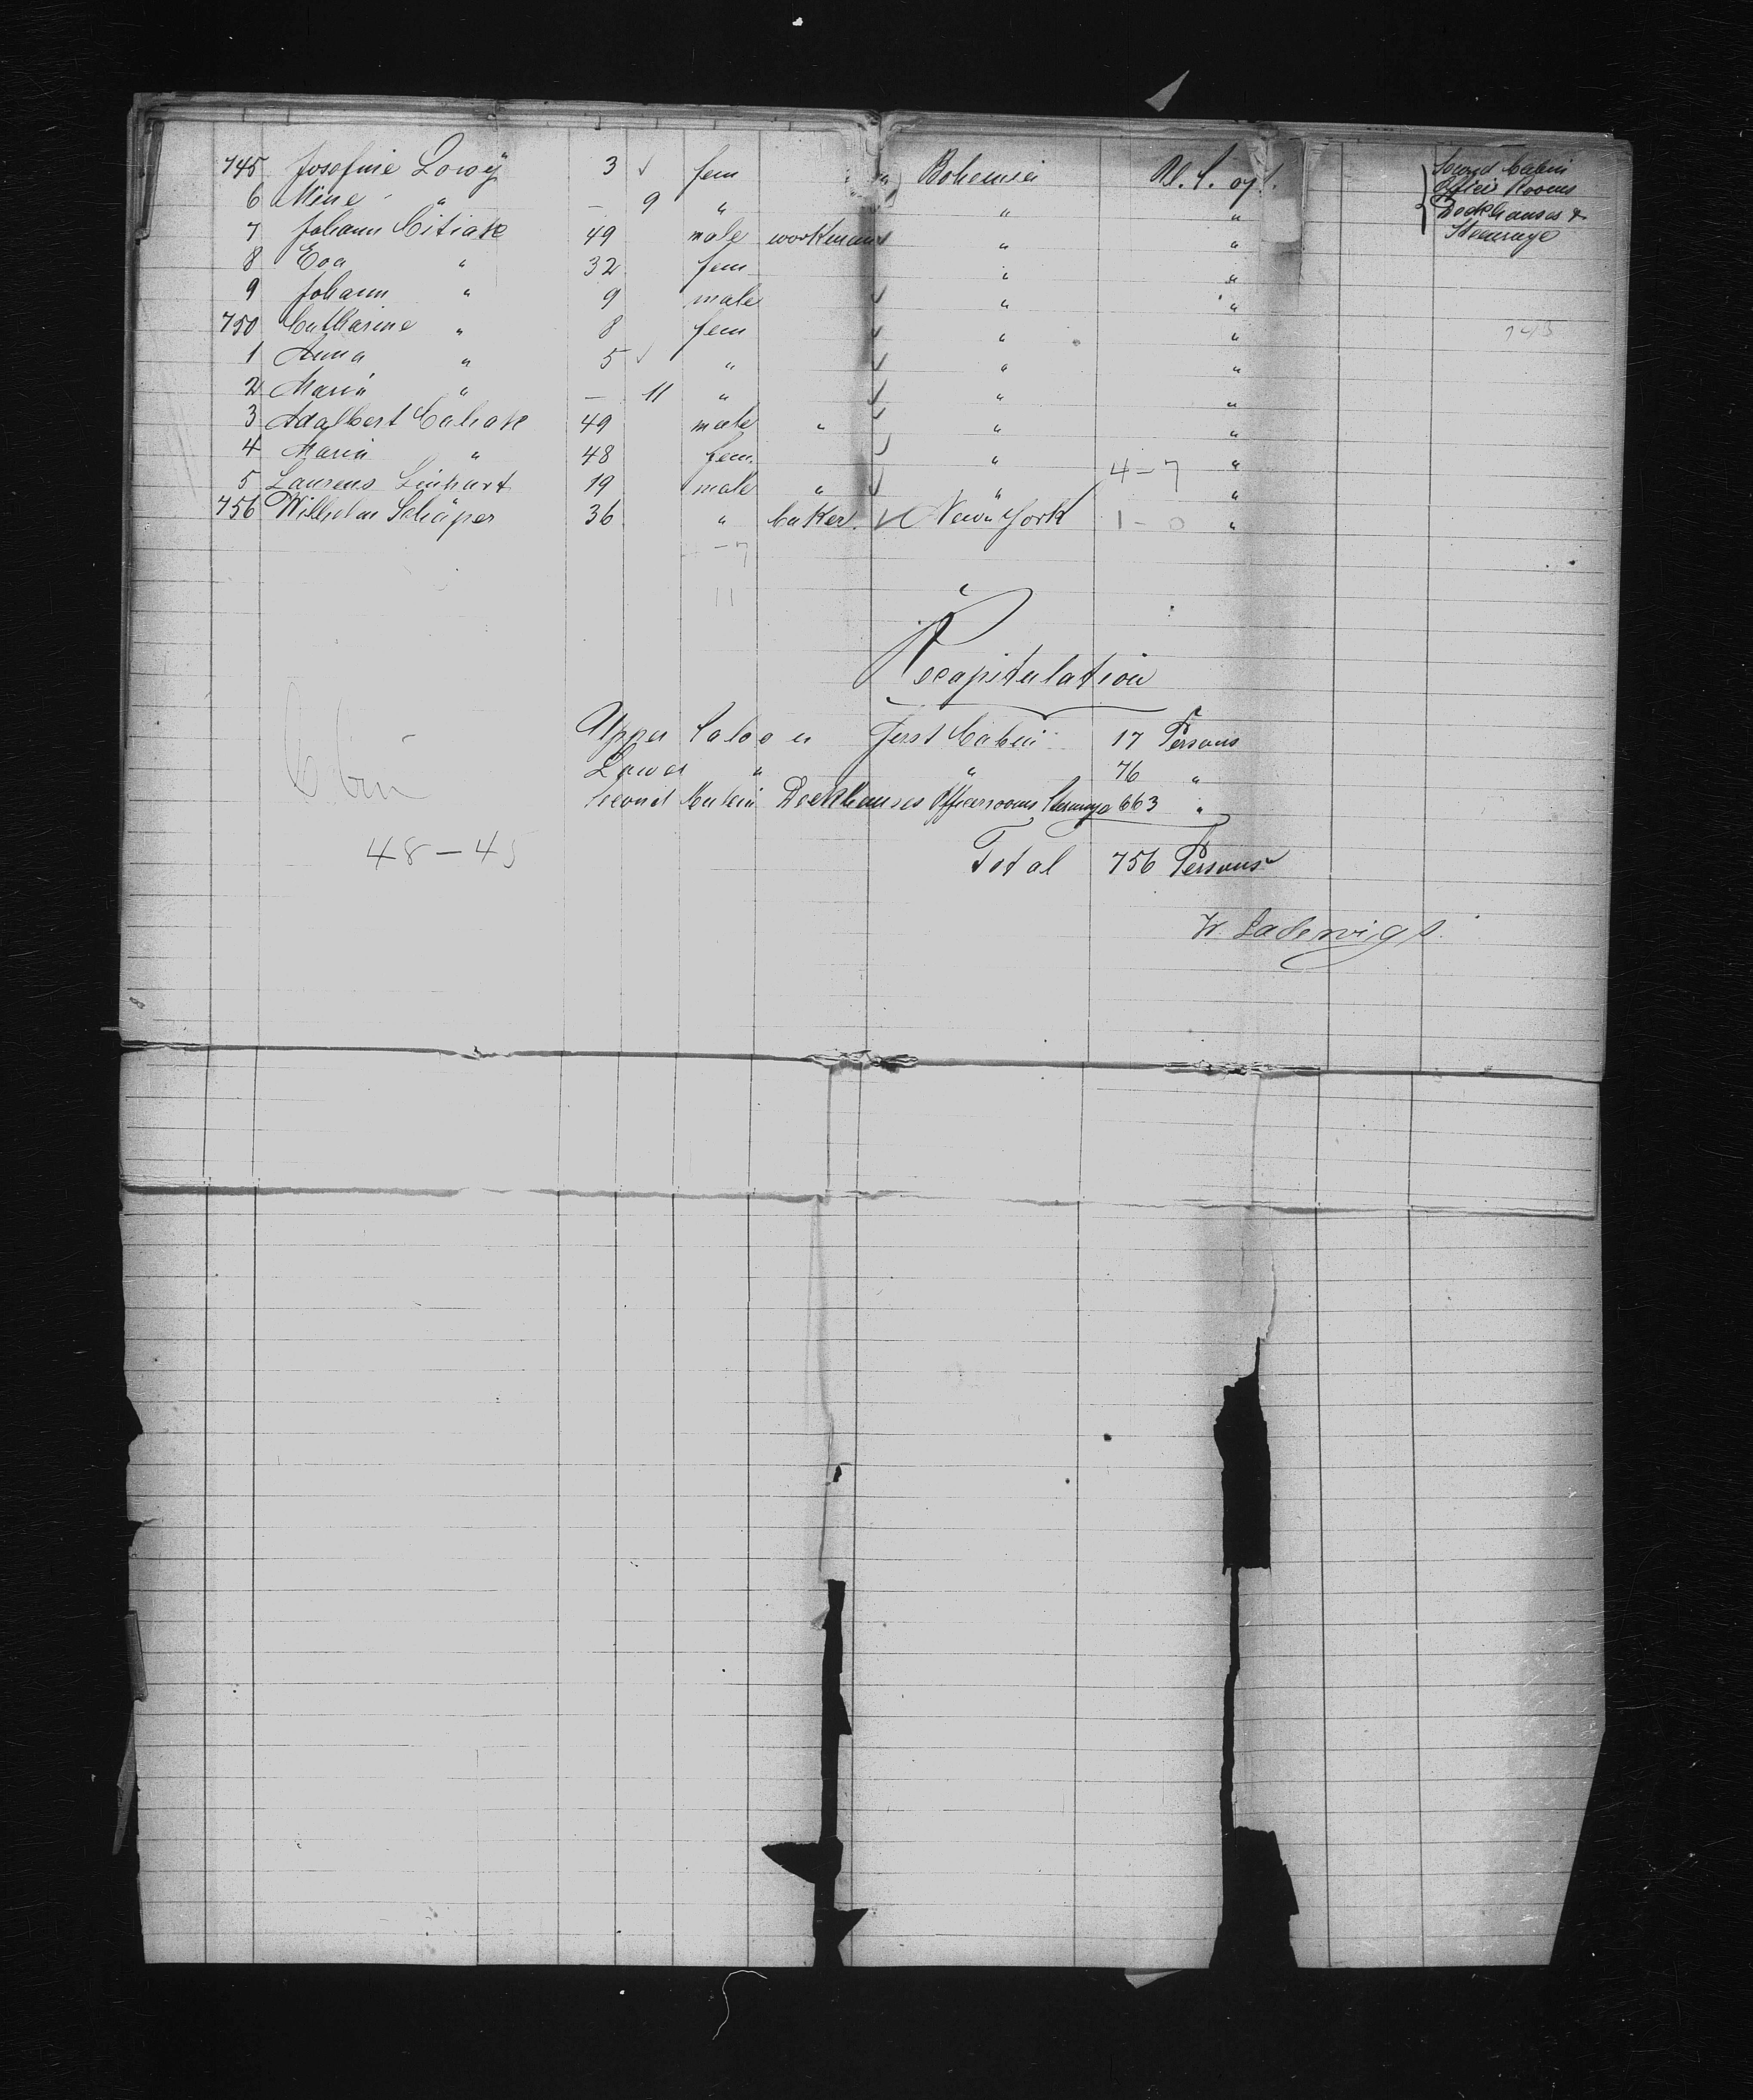 745 Josefine Lowÿ 3 ✓ fem " Bohemia U. S. of Second Cabin
6 Mine " — 9 " " " Officer Rooms
7 Johann Citiak 49 male workman " " Deckhouses &
8 Eva " 32 fem " " Steerage
9 Johann " 9 male " "
750 Catharine " 8 fem " "
1 Anna " 5 ✓ " " "
2 Maria " — 11 " " "
3 Adalbert 49 male " " "
4 Maria " 48 fem. " 4-7 "
5 Laurens Linhart 19 male " " "
756 Wilhelm Schäper 36 " baker. New York 1-0 "
-7
11
Recapitulation
Upper Saloon First Cabin 17 Persons
Lower " " 76 "
Second Cabin Deckhouses Officerrooms Steerage 663 "
48-45
Total 756 Persons
W. Ladewigs.